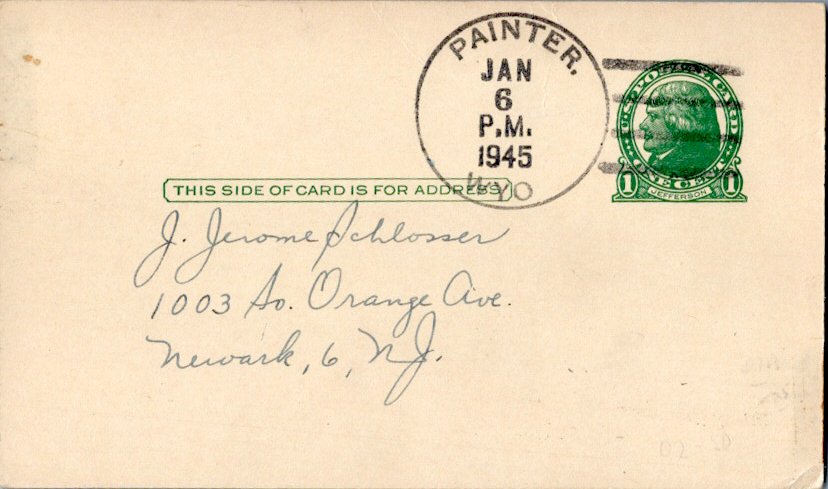 PAINTER.
JAN
6
P.M.
1945
WYO
U.S. POSTAL CARD
ONE CENT
1 JEFFERSON 1
THIS SIDE OF CARD IS FOR ADDRESS
J. Jerome Schlosser
1003 So. Orange Ave.
Newark, 6, N.J.